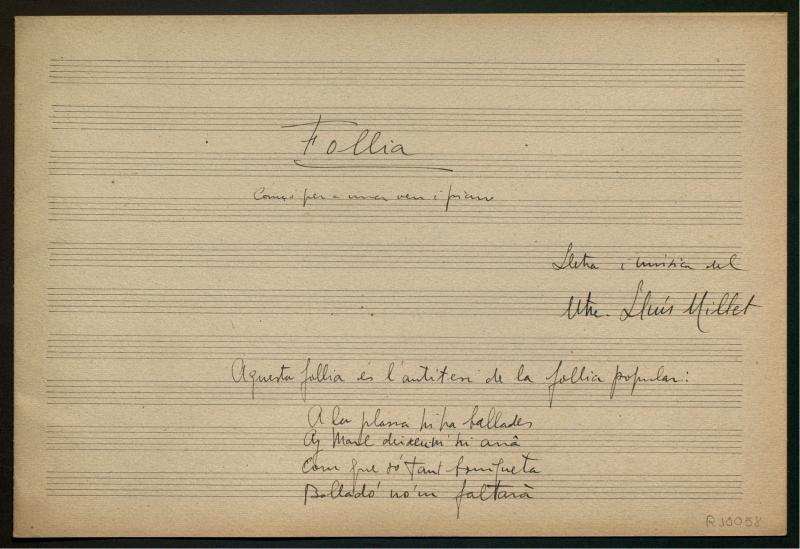 Follia
Cançó per a una veu i piano
Lletra i música del
Mtre. Lluís Millet
Aquesta follia és l'antítesi de la follia popular:
A la plassa hi ha ballades
Ay Mare deixeum hi anâ
Com que só tant boniqueta
Balladó no'm faltarà
R.10058